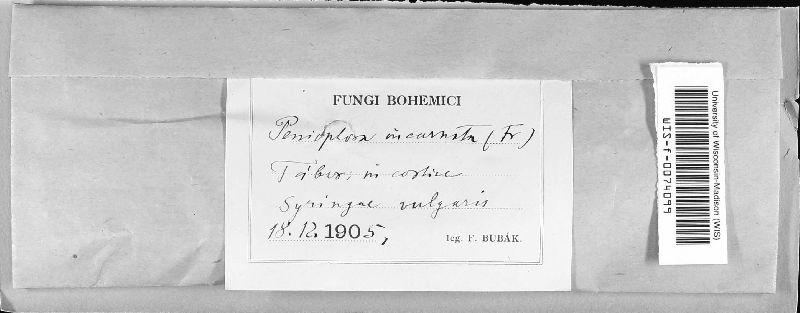 FUNGI BOHEMICI
Peniophora incarnata (Fr)
Tábor: in cortice
Syringae vulgaris
18. 12. 1905,
leg. F. BUBÁK.
University of Wisconsin-Madison (WIS)
WIS-F-0074099